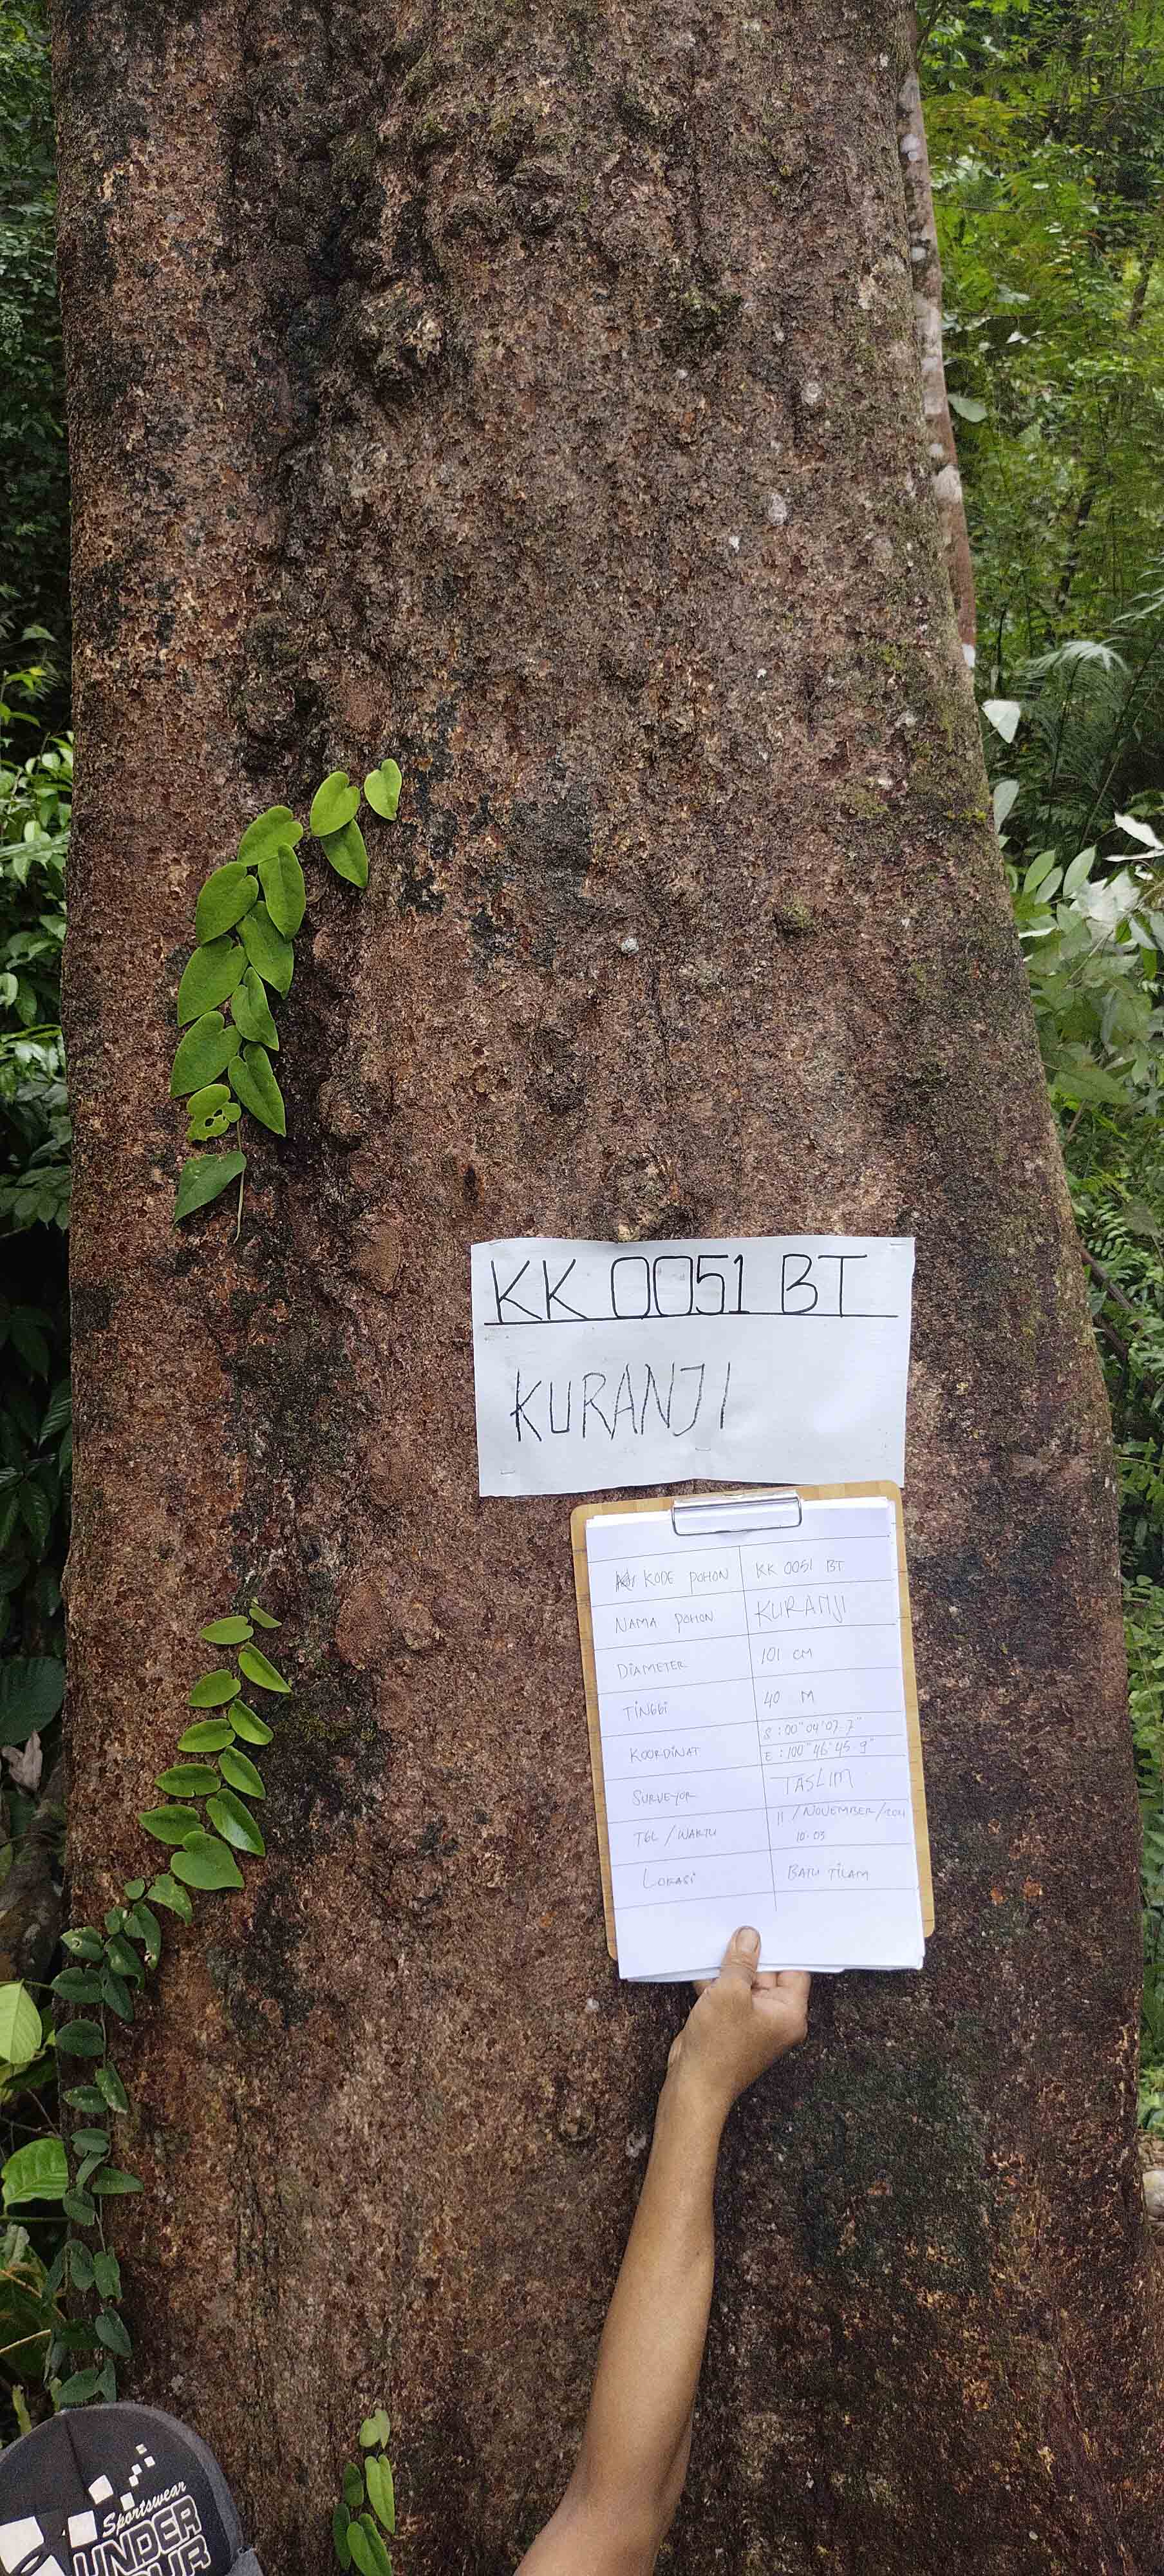 KK 0051 BT
KURANJI
KODE POHON KK 0051 BT
NAMA POHON KURANJI
DIAMETER 101 CM
TINGGI 40 M
KOORDINAT S : 00° 04' 07.7"
E : 100° 46' 45.9"
SURVEYOR TASLIM
TGL / WAKTU 11 / NOVEMBER / 2021
10.03
LOKASI BATU TILAM
Sportswear
UNDER